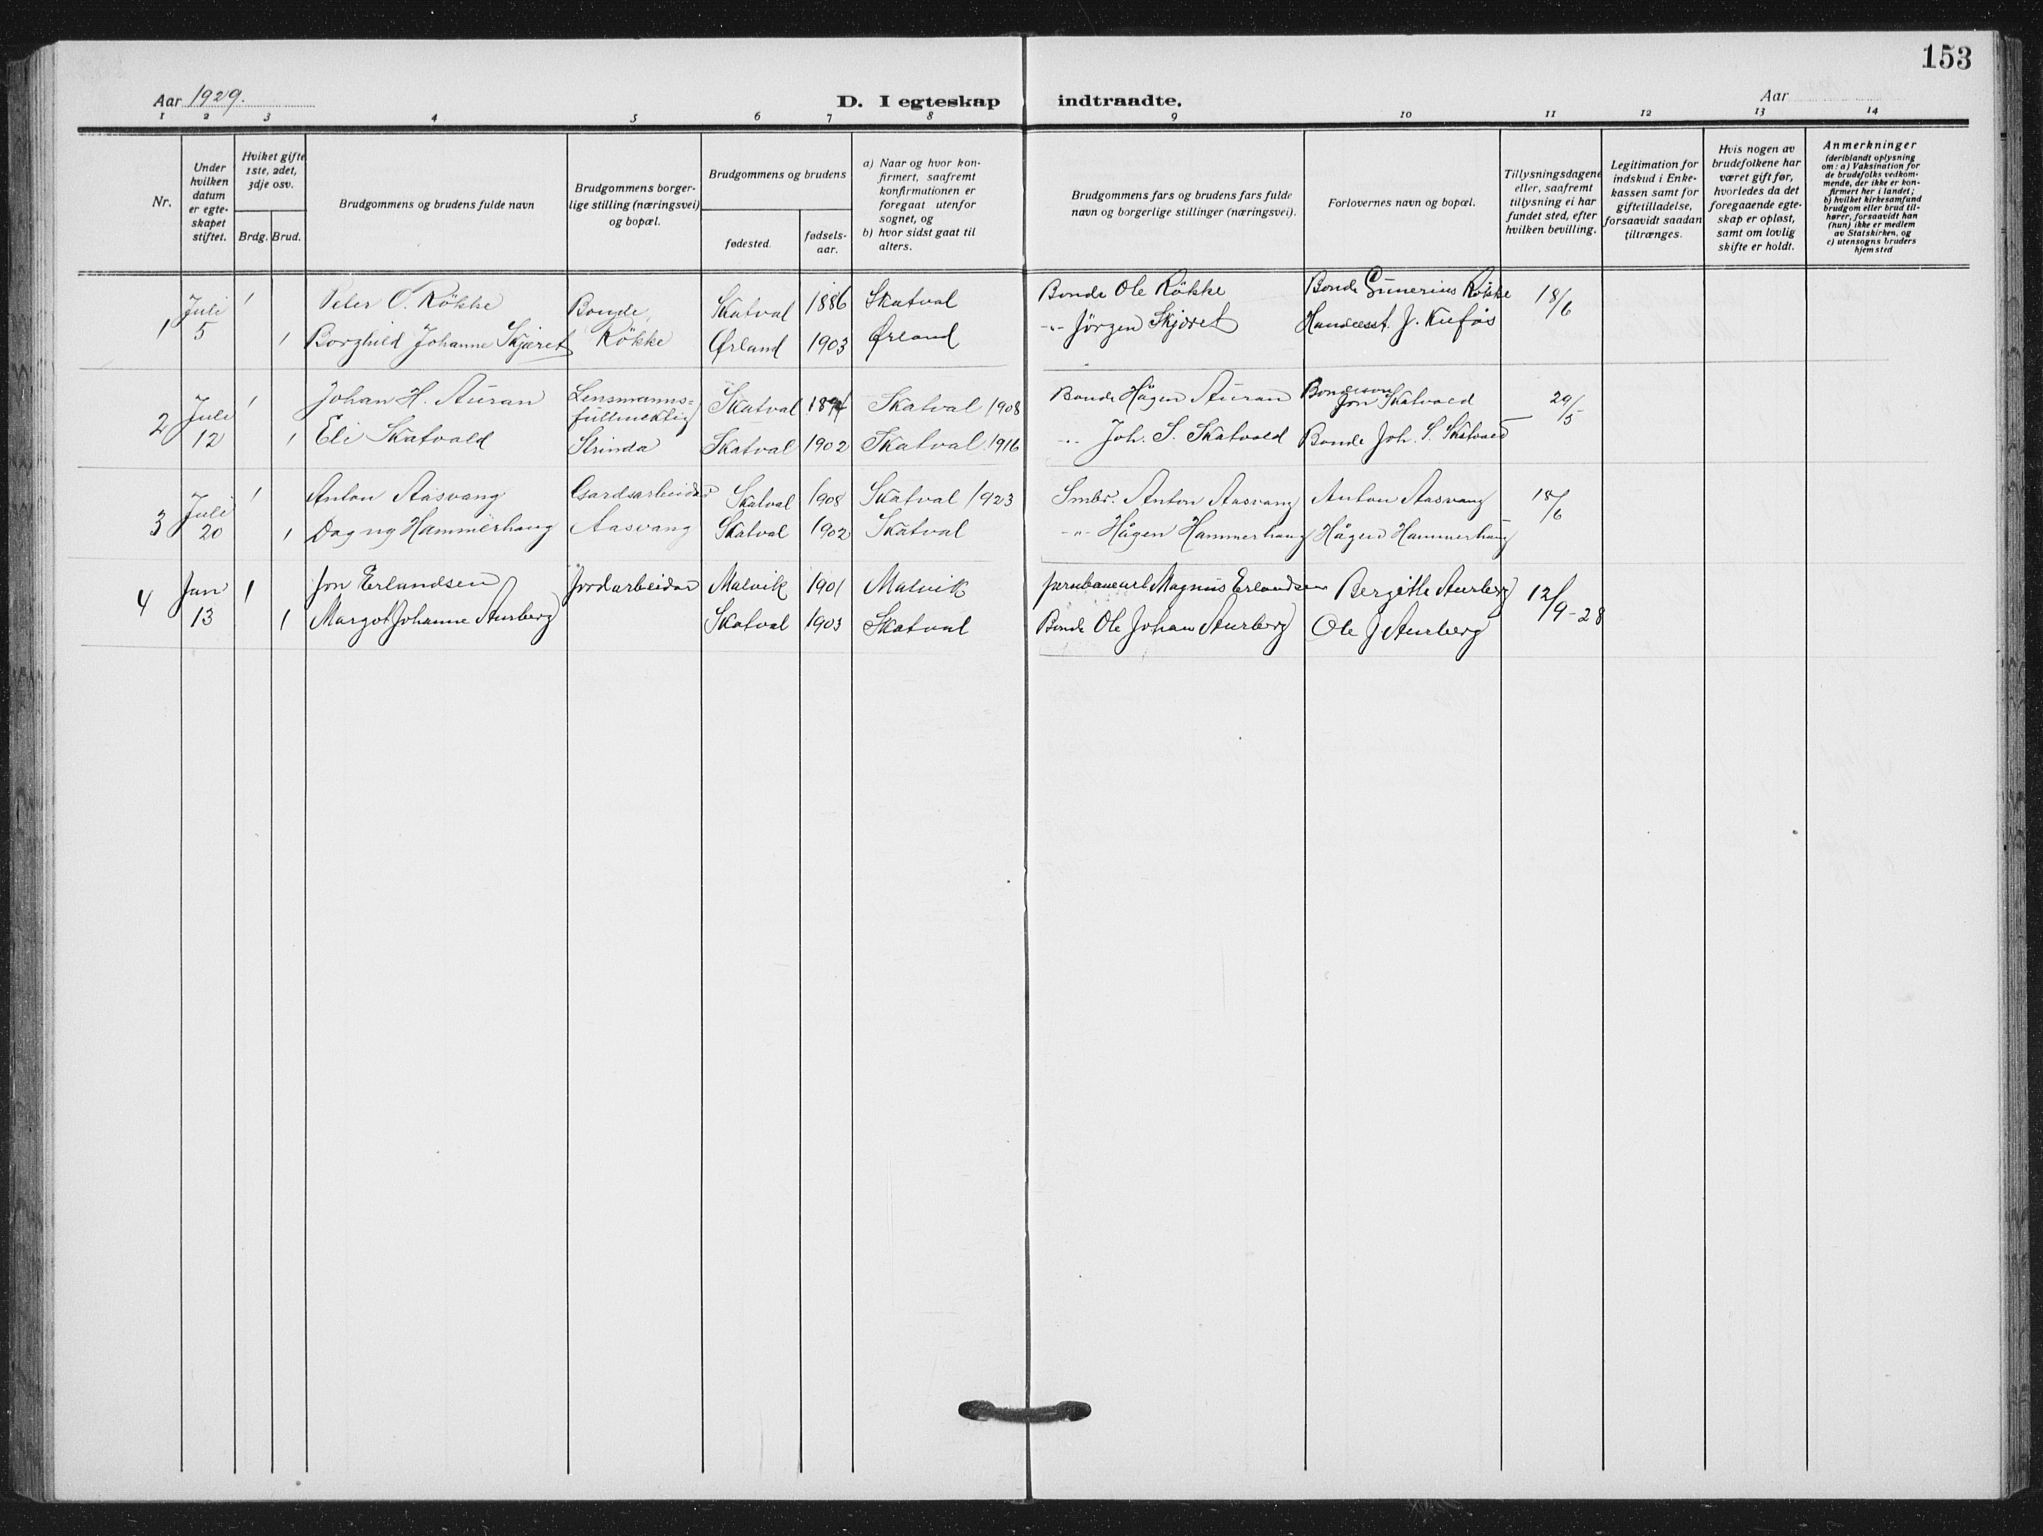 153
Aar 1929.
D. I egteskap indtraadte.
Aar
1 2 3 4 5 6 7 8 9 10 11 12 13 14
Nr.
Under hvilken datum er egte- skapet stiftet.
Hvilket gifte 1ste, 2det, 3dje osv.
Brdg. Brud.
Brudgommens og brudens fulde navn
Brudgommens borger- lige stilling (næringsvei) og bopæl.
Brudgommens og brudens
fødested. fødsels- aar.
a) Naar og hvor kon- firmert, saafremt konfirmationen er foregaat utenfor sognet, og
b) hvor sidst gaat til alters.
Brudgommens fars og brudens fars fulde navn og borgerlige stillinger (næringsvei).
Forlovernes navn og bopæl.
Tillysningsdagene eller, saafremt tillysning ei har fundet sted, efter hvilken bevilling.
Legitimation for indskud i Enke- kassen samt for giftetilladelse, forsaavidt saadan tiltrænges.
Hvis nogen av brudefolkene har været gift før, hvorledes da det foregaaende egte- skap er opløst, samt om lovlig skifte er holdt.
Anmerkninger (deriblandt oplysning om: a) Vaksination for de brudefolks vedkom- mende, der ikke er kon- firmert her i landet; b) hvilket kirkesamfund brudgom eller brud til- hører, forsaavidt han (hun) ikke er medlem av Statskirken, og c) utensogns bruders hjemsted
1 Juli 5 1 Peter O. Røkke Bonde, Skatval 1886 Skatval Bonde Ole Røkke Bonde Gunerius Røkke 18/6
1 Borghild Johanne Skjæret Røkke Ørland 1903 Ørland -"- Jörgen Skjæret J. Kufås
2 Juli 12 1 Johan H. Auran Lensmanns= fullmektig Skatval Skatval 1908 Bonde Hågen Auran Bondesøn Jon Skatvold 29/5
1 Eli Skatvold Strinda Skatval 1902 Skatval 1916 -"- Joh. S. Skatvold Bonde Joh. S. Skatvold
3 Juli 20 1 Anton Aasvang Gardsarbeider Skatval 1908 Skatval 1923 Smbr. Anton Aasvang Anton Aasvang 18/6
1 Dagny Hammerhaug Aasvang Skatval 1902 Skatval -"- Hågen Hammerhaug Hågen Hammerhaug
4 Jan 13 1 Jon Erlandsen Jordarbeider Malvik 1901 Malvik Jernbanearb. Magnus Erlandsen Bergitte Aurberg 12/9-28
1 Margot Johanne Aurberg Skatval 1903 Skatval Bonde Ole Johan Aurberg Ole J Aurberg